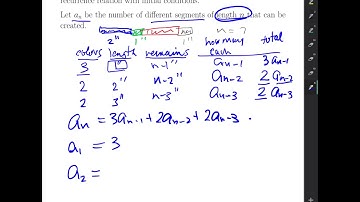 recurrence relation with initial conditions.
Let aₙ be the number of different segments of length n that can be
created.
n = 7
2" 1"
colors length remains how many each total
3 1" n-1" aₙ₋₁ 3aₙ₋₁
2 2" n-2" aₙ₋₂ 2aₙ₋₂
2 3" n-3" aₙ₋₃ 2aₙ₋₃
aₙ = 3aₙ₋₁ + 2aₙ₋₂ + 2aₙ₋₃ .
a₁ = 3
a₂ =